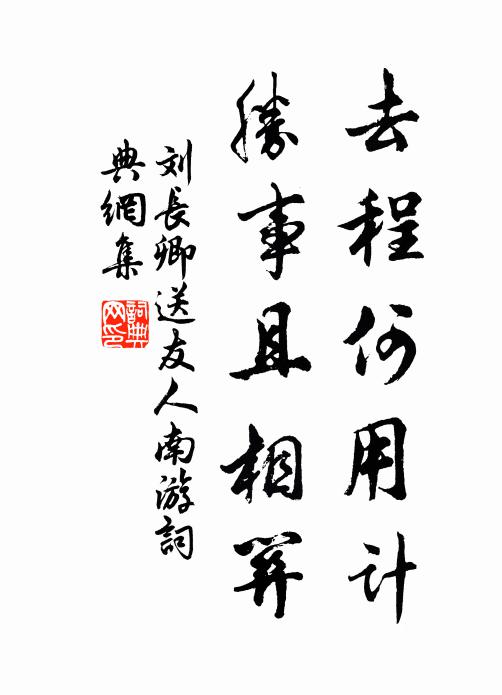 去程何用计
勝事且相關
刘長卿送友人南游詞
典網集
詞典
网印